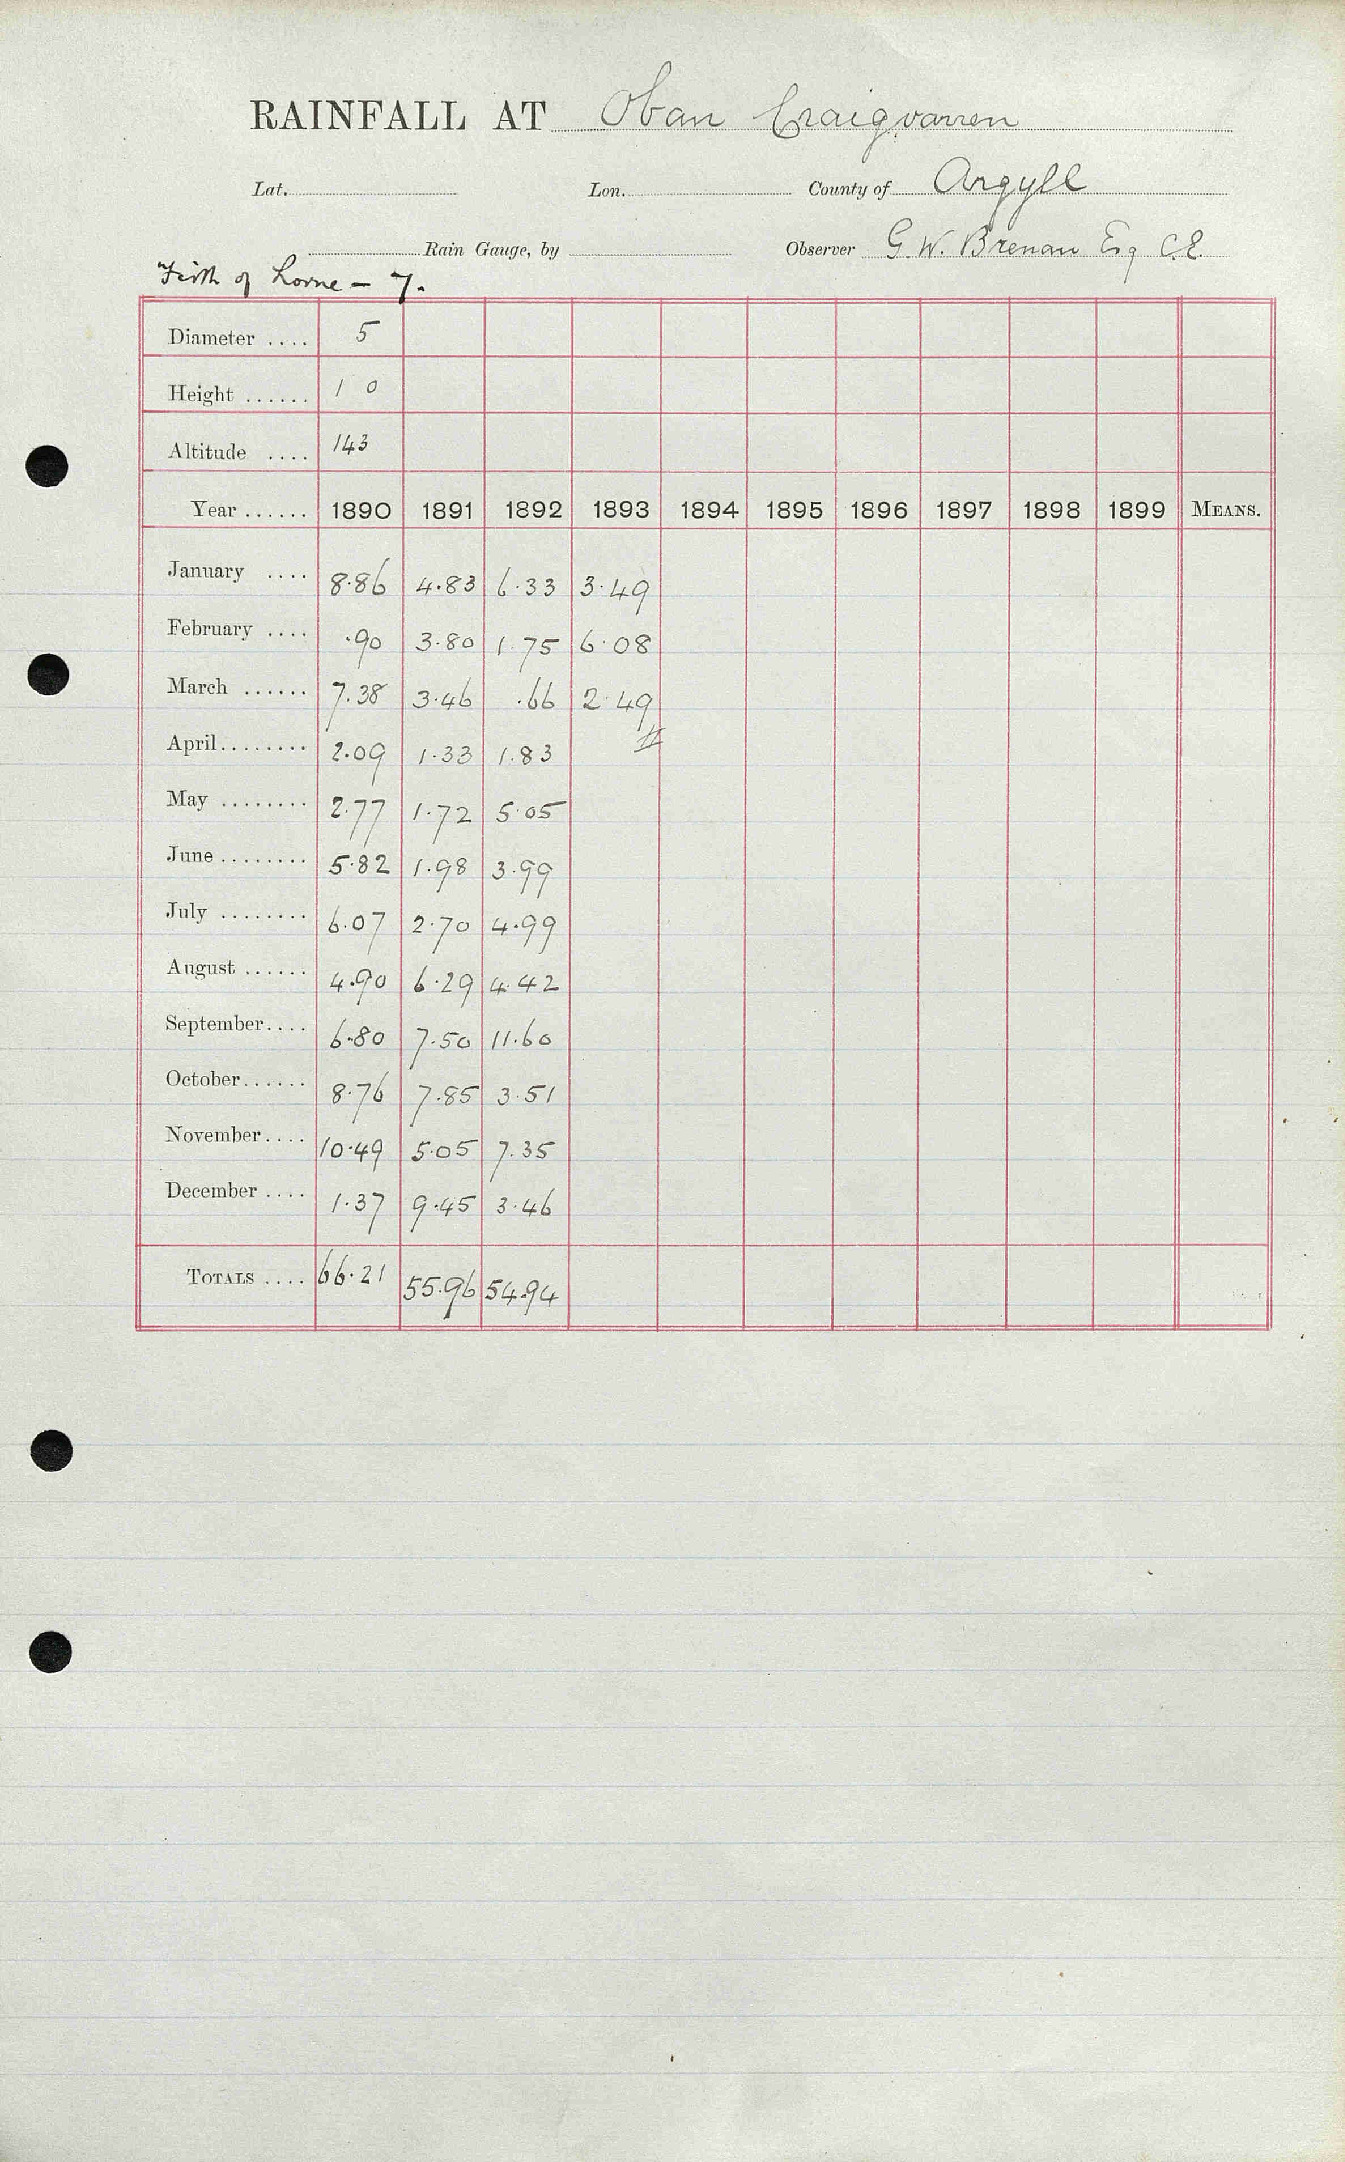 RAINFALL AT Oban Craigvarren
Lat. Lon. County of Argyll
Rain Gauge, by Observer G. W. Brenan Esq C.E.
Firth of Lorne - 7.
Diameter .... 5
Height ...... 1 0
Altitude .... 143
Year ...... 1890 1891 1892 1893 1894 1895 1896 1897 1898 1899 MEANS.
January .... 8.86 4.83 6.33 3.49
February .... .90 3.80 1.75 6.08
March ...... 7.38 3.46 .66 2.49
April ........ 2.09 1.33 1.83
May ........ 2.77 1.72 5.05
June ........ 5.82 1.98 3.99
July ........ 6.07 2.70 4.99
August ...... 4.90 6.29 4.42
September.... 6.80 7.50 11.60
October...... 8.76 7.85 3.51
November.... 10.49 5.05 7.35
December .... 1.37 9.45 3.46
TOTALS .... 66.21 55.96 54.94